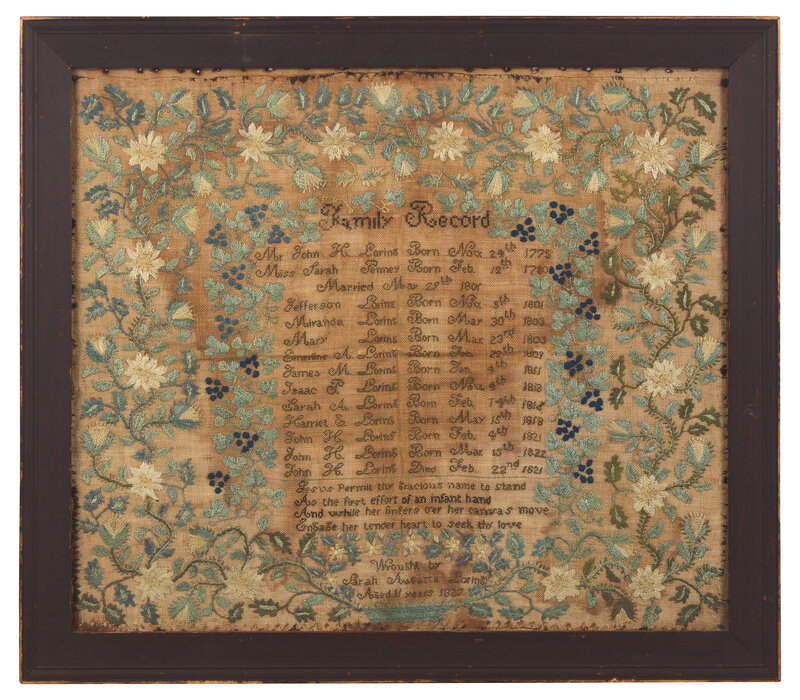 Family Record
Mr John H. Loring Born Nov. 24th 1775
Miss Sarah Penney Born Feb. 12th 1780
Married May 28th 1801
Jefferson Loring Born Nov. 5th 1801
Miranda Loring Born May 30th 1803
Mary Loring Born Mar. 23rd
Emerline A. Loring Born Feb.
James M. Loring Born Jan. 1811
Isaac P. Loring Born Nov.
Sarah A. Loring Born Feb. 14th 1816
Harriet E. Loring Born May 15th 1818
John H. Loring Born Feb. 4th 1821
John H. Loring Born Mar. 15th 1822
John H. Loring Died Feb. 22nd 1821
Jesus Permit thy gracious name to stand
As the first effort of an infant hand
And while her fingers o'er her canvas move
Engage her tender heart to seek thy love
Wrought by
Sarah Augusta Loring
Aged 11 years 1827